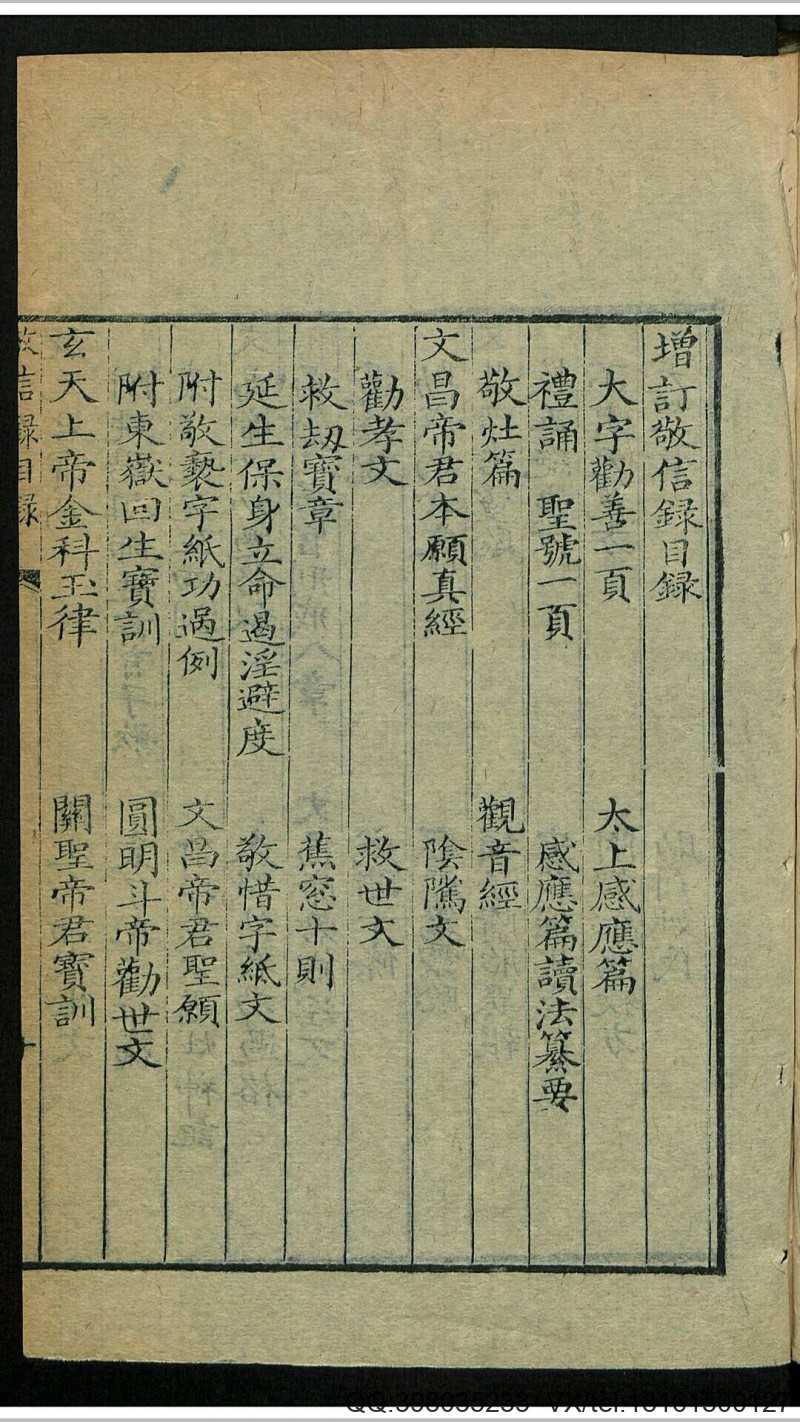 增訂敬信録目録
大字勸善一頁　太上感應篇
禮誦　聖號一頁　感應篇讀法纂要
敬灶篇　觀音經
文昌帝君本願真經　陰隲文
勸孝文　救世文
救劫寶章　蕉窓十則
延生保身立命遏淫避度　敬惜字紙文
附敬褻字紙功過例　文昌帝君聖願
附東嶽回生寶訓　圓明斗帝勸世文
玄天上帝金科玉律　關聖帝君寶訓
敬信録目録